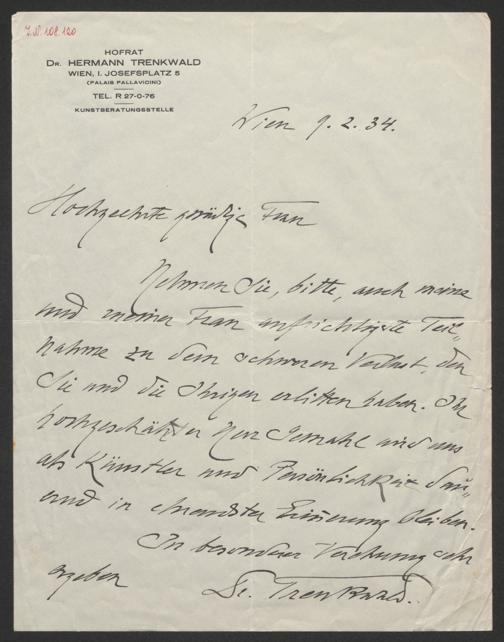 J.N. 108.120
HOFRAT
DR. HERMANN TRENKWALD
WIEN, I. JOSEFSPLATZ 5
(PALAIS PALLAVICINI)
TEL. R 27-0-76
KUNSTBERATUNGSSTELLE
Wien 9. 2. 34.
Hochgeehrte gnädige Frau
Nehmen Sie, bitte, auch meine
und meiner Frau aufrichtigste Teil-
nahme zu dem schweren Verlust, den
Sie und die Ihrigen erlitten haben. Ihr
hochgeschätzter Herr Gemahl wird uns
als Künstler und Persönlichkeit dau-
ernd in ehrendster Erinnerung bleiben.
In besonderer Verehrung sehr
ergeben
Dr. Trenkwald.